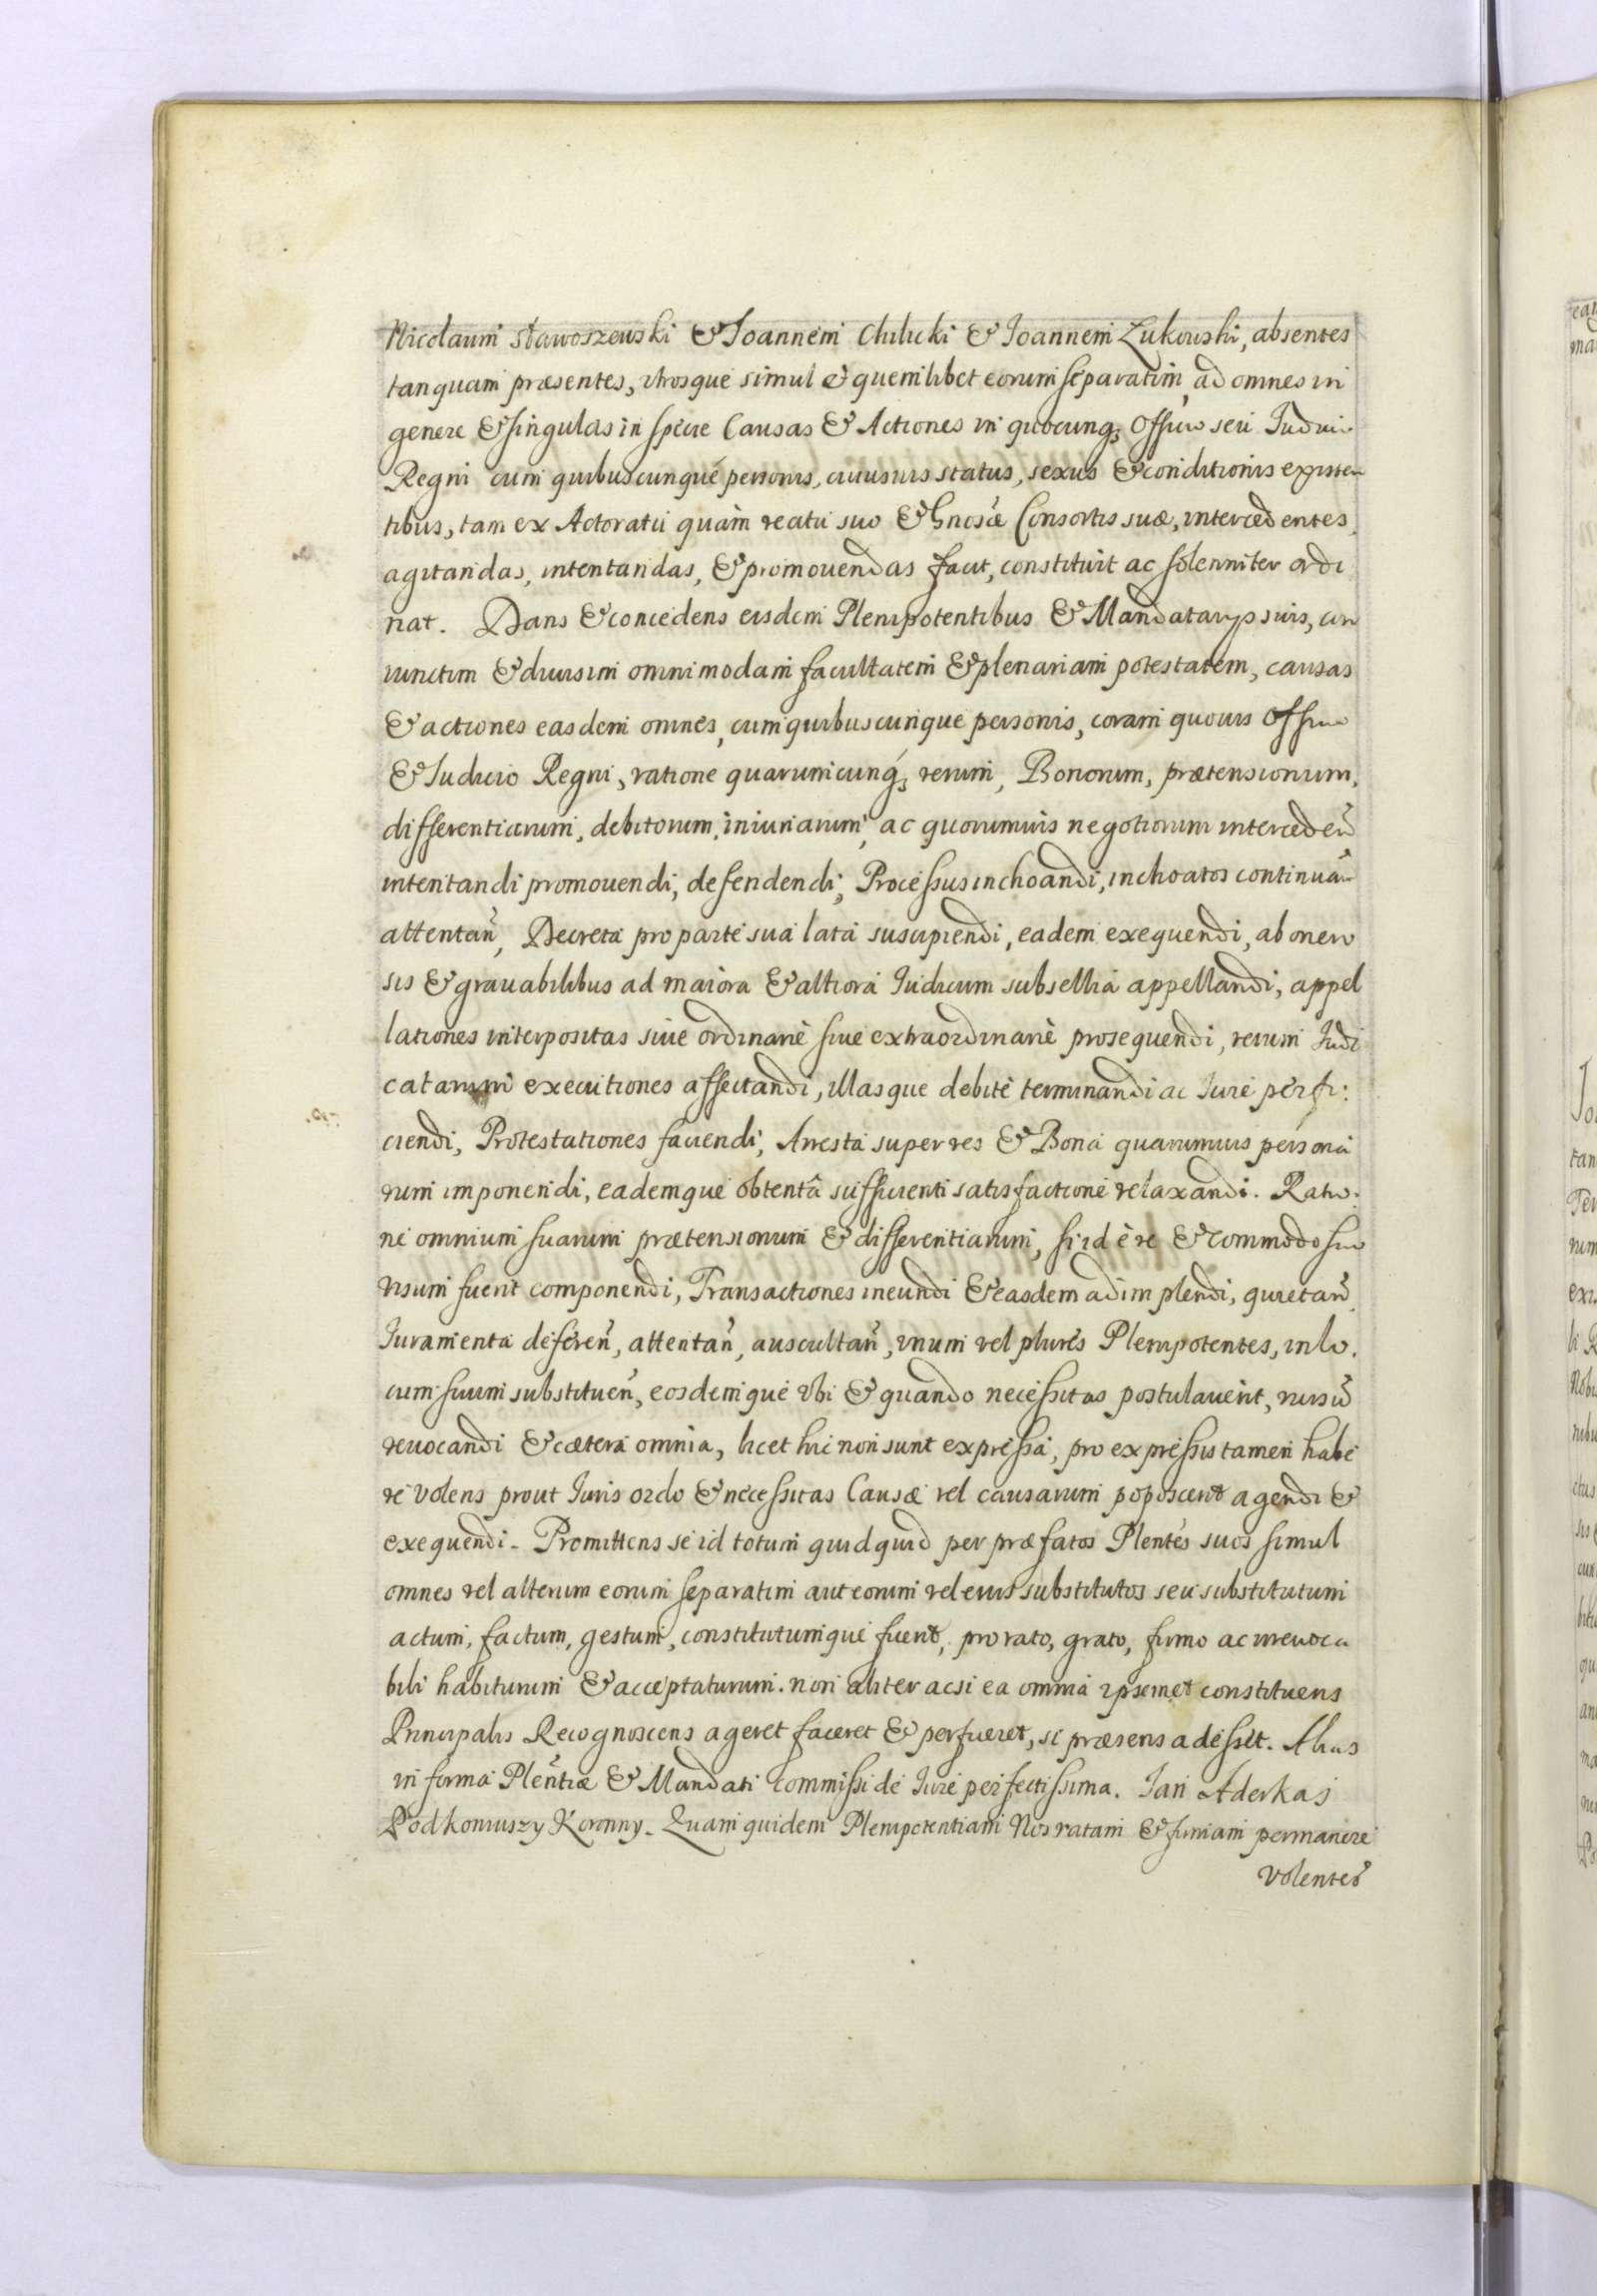 Nicolaum Stawoszewski & Ioannem Chilicki & Ioannem Zukowski, absentes
tanquam præsentes, vtrosque simul & quemlibet eorum separatim, ad omnes in
genere & singulas in specie Causas & Actiones in quocunq; Officio seu Iudicio
Regni cum quibuscunque personis, cuiusuis status, sexus & conditionis existen
tibus, tam ex Actoratu quàm reatu suo & Gnosæ Consortis suæ, intercedentes
agitandas, intentandas, & promouendas facit, constituit ac solenniter ordi
nat. Dans & concedens eisdem Plenipotentibus & Mandatarys suis, con
iunctim & diuisim omnimodam facultatem & plenariam potestatem, causas
& actiones easdem omnes, cum quibuscunque personis, coram quouis Officio
& Iudicio Regni, ratione quarumcunq; rerum, Bonorum, prætensionum,
differentiarum, debitorum, iniuriarum, ac quorumuis negotiorum interceden̄
intentandi promouendi, defendendi, Processus inchoandi, inchoatos continuan̄
attentan̄, Decreta pro parte sua lata suscipiendi, eadem exequendi, ab onero
sis & grauabilibus ad maiora & altiora Iudicum subsellia appellandi, appel
lationes interpositas siue ordinariè siue extraordinariè prosequendi, rerum Iudi
catarum executiones affectandi, illasque debitè terminandi ac Iure perfi:
ciendi, Protestationes faciendi, Arresta super res & Bona quarumuis persona
rum imponendi, eademque obtentâ sufficienti satisfactione relaxandi. Ratio-
ne omnium suarum prætensionum & differentiarum, si id è re & commodo suo
visum fuerit componendi, Transactiones ineundi & easdem adimplendi, quietan̄
Iuramenta deferen̄, attentan̄, auscultan̄, vnum vel plures Plenipotentes, in lo-
cum suum substituen̄, eosdemque vbi & quando necessitas postulauerit, rursū
reuocandi & cætera omnia, licet hic non sunt expressa, pro expressis tamen habe
re volens prout Iuris ordo & necessitas Causæ vel causarum poposcerit agendi &
exequendi. Promittens se id totum quidquid per præfatos Plentes suos simul
omnes vel alterum eorum separatim aut eorum vel eius substitutos seu substitutum
actum, factum, gestum, constitutumque fuerit, pro rato, grato, firmo ac irreuoca
bili habiturum & acceptaturum. non aliter acsi ea omnia ipsemet constituens
Principalis Recognoscens ageret faceret & perficeret, si præsens adesset. Alias
in forma Plen̄tiæ & Mandati commissi de Iure perfectissima. Jan Aderkas
Podkoniuszy Koronny. Quam quidem Plenipotentiam Nos ratam & firmam permanere
volentes